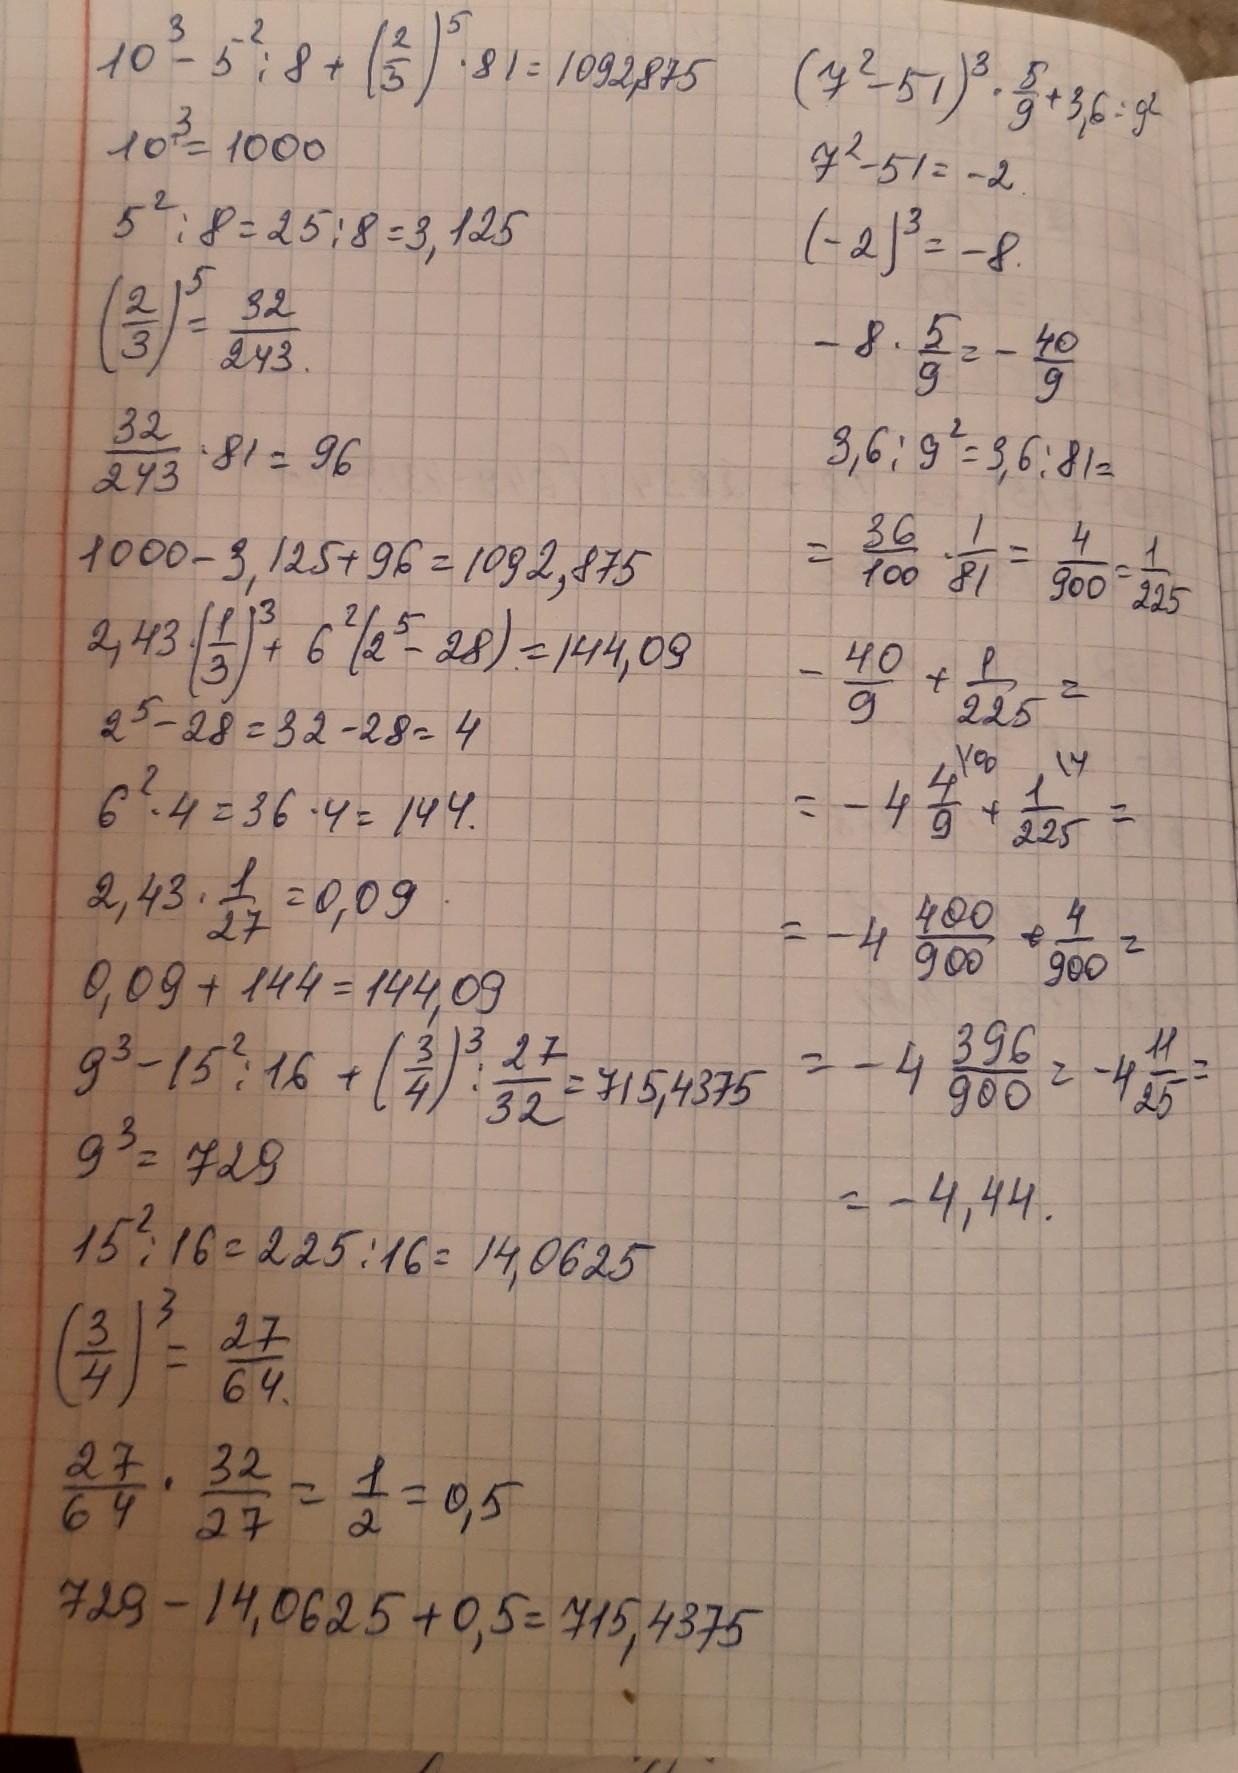 10³ - 5² : 8 + (2/3)⁵ · 81 = 1092,875
10³ = 1000
5² : 8 = 25 : 8 = 3,125
(2/3)⁵ = 32/243.
32/243 · 81 = 96
1000 - 3,125 + 96 = 1092,875
2,43 · (1/3)³ + 6² (2⁵ - 28) = 144,09
2⁵ - 28 = 32 - 28 = 4
6² · 4 = 36 · 4 = 144.
2,43 · 1/27 = 0,09
0,09 + 144 = 144,09
9³ - 15² : 16 + (3/4)³ : 27/32 = 715,4375
9³ = 729
15² : 16 = 225 : 16 = 14,0625
(3/4)³ = 27/64.
27/64 · 32/27 = 1/2 = 0,5
729 - 14,0625 + 0,5 = 715,4375
(7² - 51)³ · 5/9 + 3,6 : 9²
7² - 51 = -2.
(-2)³ = -8.
-8 · 5/9 = - 40/9
3,6 : 9² = 3,6 : 81 =
= 36/100 · 1/81 = 4/900 = 1/225
- 40/9 + 1/225 =
= -4 4/9 \100 + 1/225 \4 =
= -4 400/900 + 4/900 =
= -4 396/900 = -4 11/25 =
= -4,44.